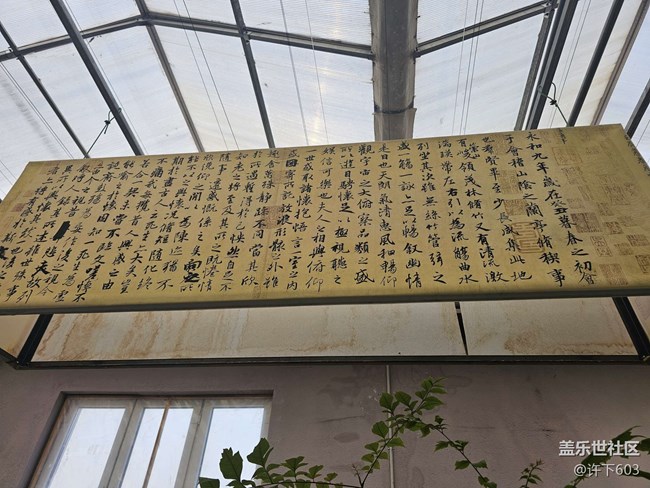 永和九年歲在癸丑暮春之初會
于會稽山陰之蘭亭脩稧事
也羣賢畢至少長咸集此地
有崇山峻領茂林脩竹又有清流激
湍暎帶左右引以為流觴曲水
列坐其次雖無絲竹管弦之
盛一觴一詠亦足以暢敘幽情
是日也天朗氣清惠風和暢仰
觀宇宙之大俯察品類之盛
所以遊目騁懷足以極視聽之
娛信可樂也夫人之相與俯仰
一世或取諸懷抱悟言一室之內
或因寄所託放浪形骸之外雖
趣舍萬殊靜躁不同當其欣
於所遇暫得於己快然自足不
知老之將至及其所之既惓情
隨事遷感慨係之矣向之所欣
俛仰之閒以為陳迹猶不
能不以之興懷況脩短隨化終
期於盡古人云死生亦大矣豈
不痛哉每攬昔人興感之由
若合一契未嘗不臨文嗟悼不
能喻之於懷固知一死生為虛
誕齊彭殤為妄作後之視今
亦由今之視昔悲夫故列
敘時人錄其所述雖世殊事
盖乐世社区
@许下603